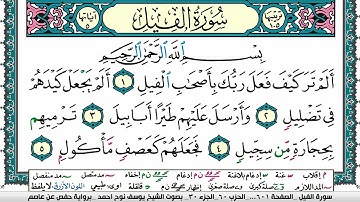 سُورَةُ الفِيلِ
ترتيبها ١٠٥
آياتها ٥
بِسْمِ اللَّهِ الرَّحْمَٰنِ الرَّحِيمِ
أَلَمْ تَرَ كَيْفَ فَعَلَ رَبُّكَ بِأَصْحَابِ الْفِيلِ ١ أَلَمْ يَجْعَلْ كَيْدَهُمْ
فِي تَضْلِيلٍ ٢ وَأَرْسَلَ عَلَيْهِمْ طَيْرًا أَبَابِيلَ ٣ تَرْمِيهِم
بِحِجَارَةٍ مِّن سِجِّيلٍ ٤ فَجَعَلَهُمْ كَعَصْفٍ مَّأْكُولٍ ٥
سورة الفيل - الصفحة ٦٠١ ... الحزب ٦٠ - الجزء ٣٠ بصوت الشيخ يوسف نوح احمد - برواية حفص عن عاصم